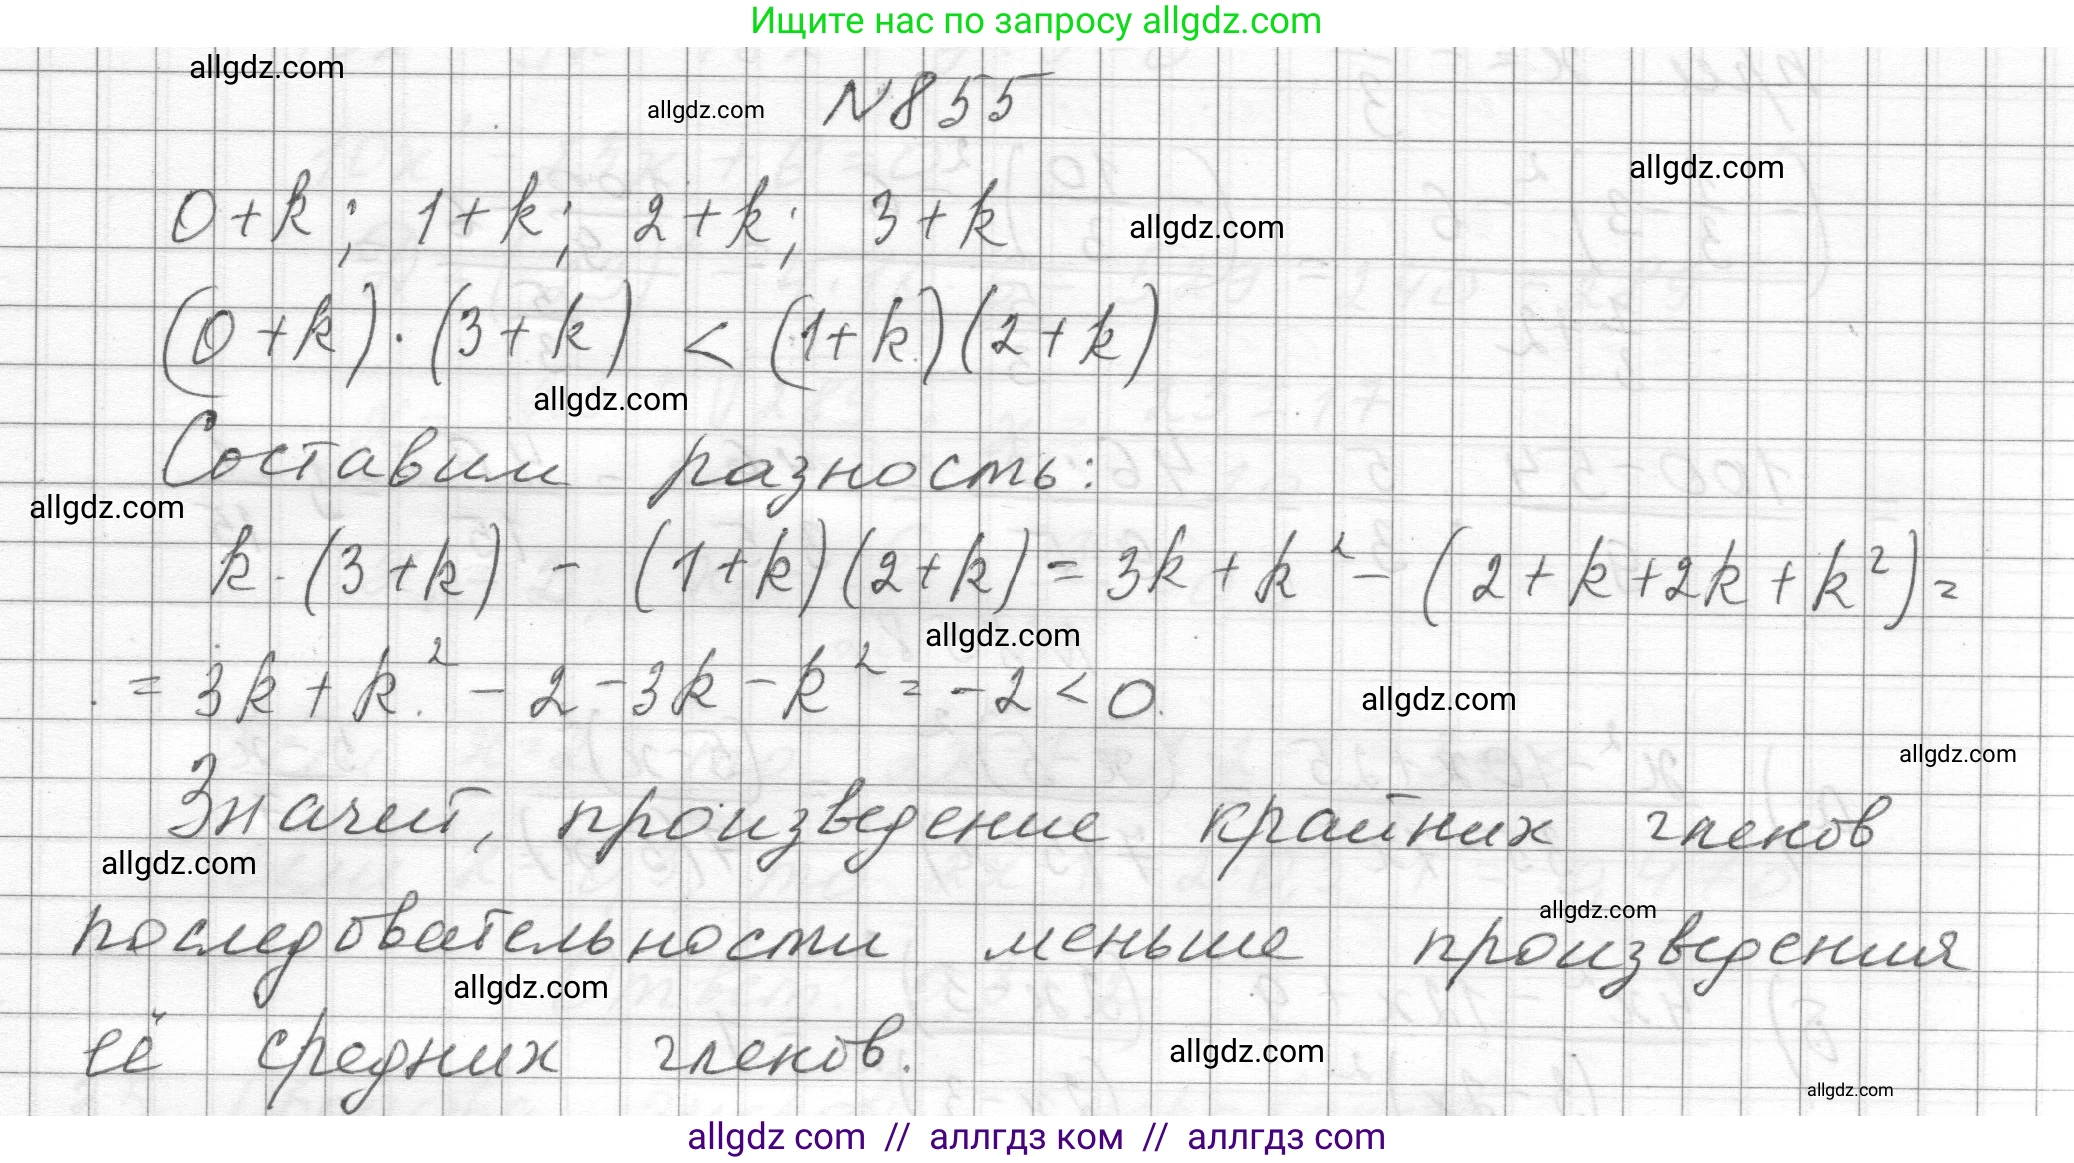 Ищите нас по запросу allgdz.com
allgdz.com
allgdz.com
N 855
allgdz.com
0+k; 1+k; 2+k; 3+k
allgdz.com
(0+k)·(3+k) < (1+k)(2+k)
allgdz.com
Составим разность:
allgdz.com
k·(3+k) - (1+k)(2+k) = 3k + k² - (2+k+2k+k²) =
allgdz.com
= 3k + k² - 2 - 3k - k² = -2 < 0.
allgdz.com
allgdz.com
Значит, произведение крайних членов
allgdz.com
allgdz.com
последовательности меньше произведения
allgdz.com
её средних членов.
allgdz.com
allgdz.com
allgdz com // аллгдз ком // аллгдз com